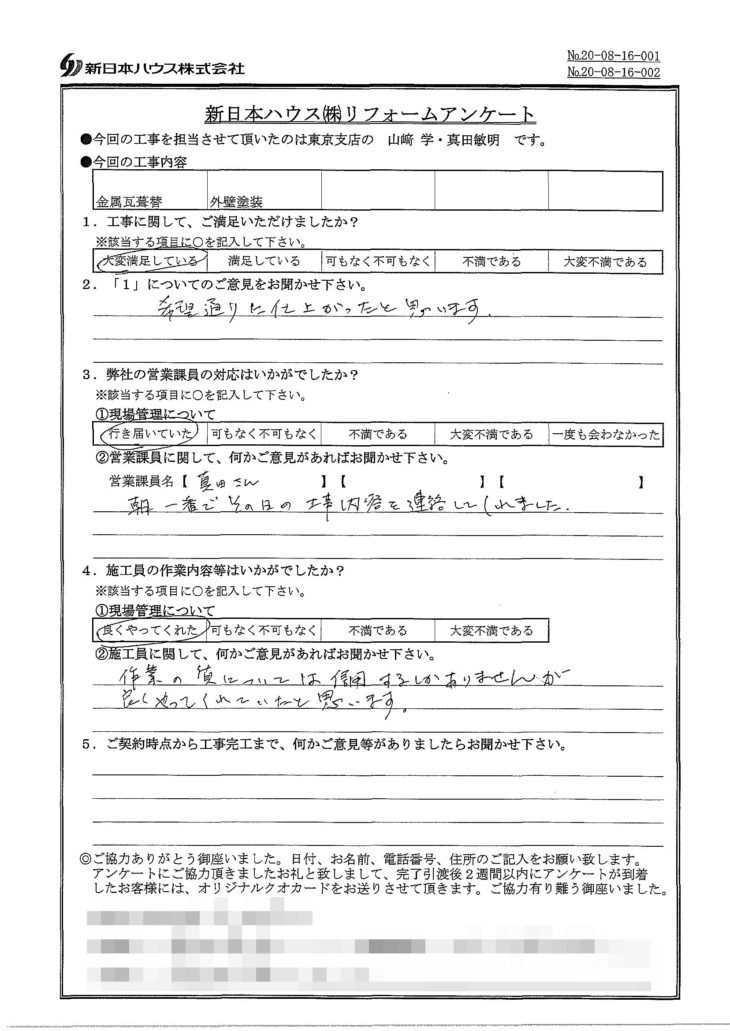 新日本ハウス株式会社
№20-08-16-001
№20-08-16-002
新日本ハウス㈱リフォームアンケート
●今回の工事を担当させて頂いたのは東京支店の 山﨑 学・真田敏明 です。
●今回の工事内容
金属瓦葺替 外壁塗装
1．工事に関して、ご満足いただけましたか？
※該当する項目に○を記入して下さい。
大変満足している 満足している 可もなく不可もなく 不満である 大変不満である
2．「1」についてのご意見をお聞かせ下さい。
希望通りに仕上がったと思います.
3．弊社の営業課員の対応はいかがでしたか？
※該当する項目に○を記入して下さい。
①現場管理について
行き届いていた 可もなく不可もなく 不満である 大変不満である 一度も会わなかった
②営業課員に関して、何かご意見があればお聞かせ下さい。
営業課員名【 真田さん 】【 】【 】
朝一番でその日の工事内容を連絡してくれました.
4．施工員の作業内容等はいかがでしたか？
※該当する項目に○を記入して下さい。
①現場管理について
良くやってくれた 可もなく不可もなく 不満である 大変不満である
②施工員に関して、何かご意見があればお聞かせ下さい。
作業の質については信用するしかありませんが
良くやってくれていたと思います。
5．ご契約時点から工事完工まで、何かご意見等がありましたらお聞かせ下さい。
◎ご協力ありがとう御座いました。日付、お名前、電話番号、住所のご記入をお願い致します。
アンケートにご協力頂きましたお礼と致しまして、完了引渡後2週間以内にアンケートが到着
したお客様には、オリジナルクオカードをお送りさせて頂きます。ご協力有り難う御座いました。